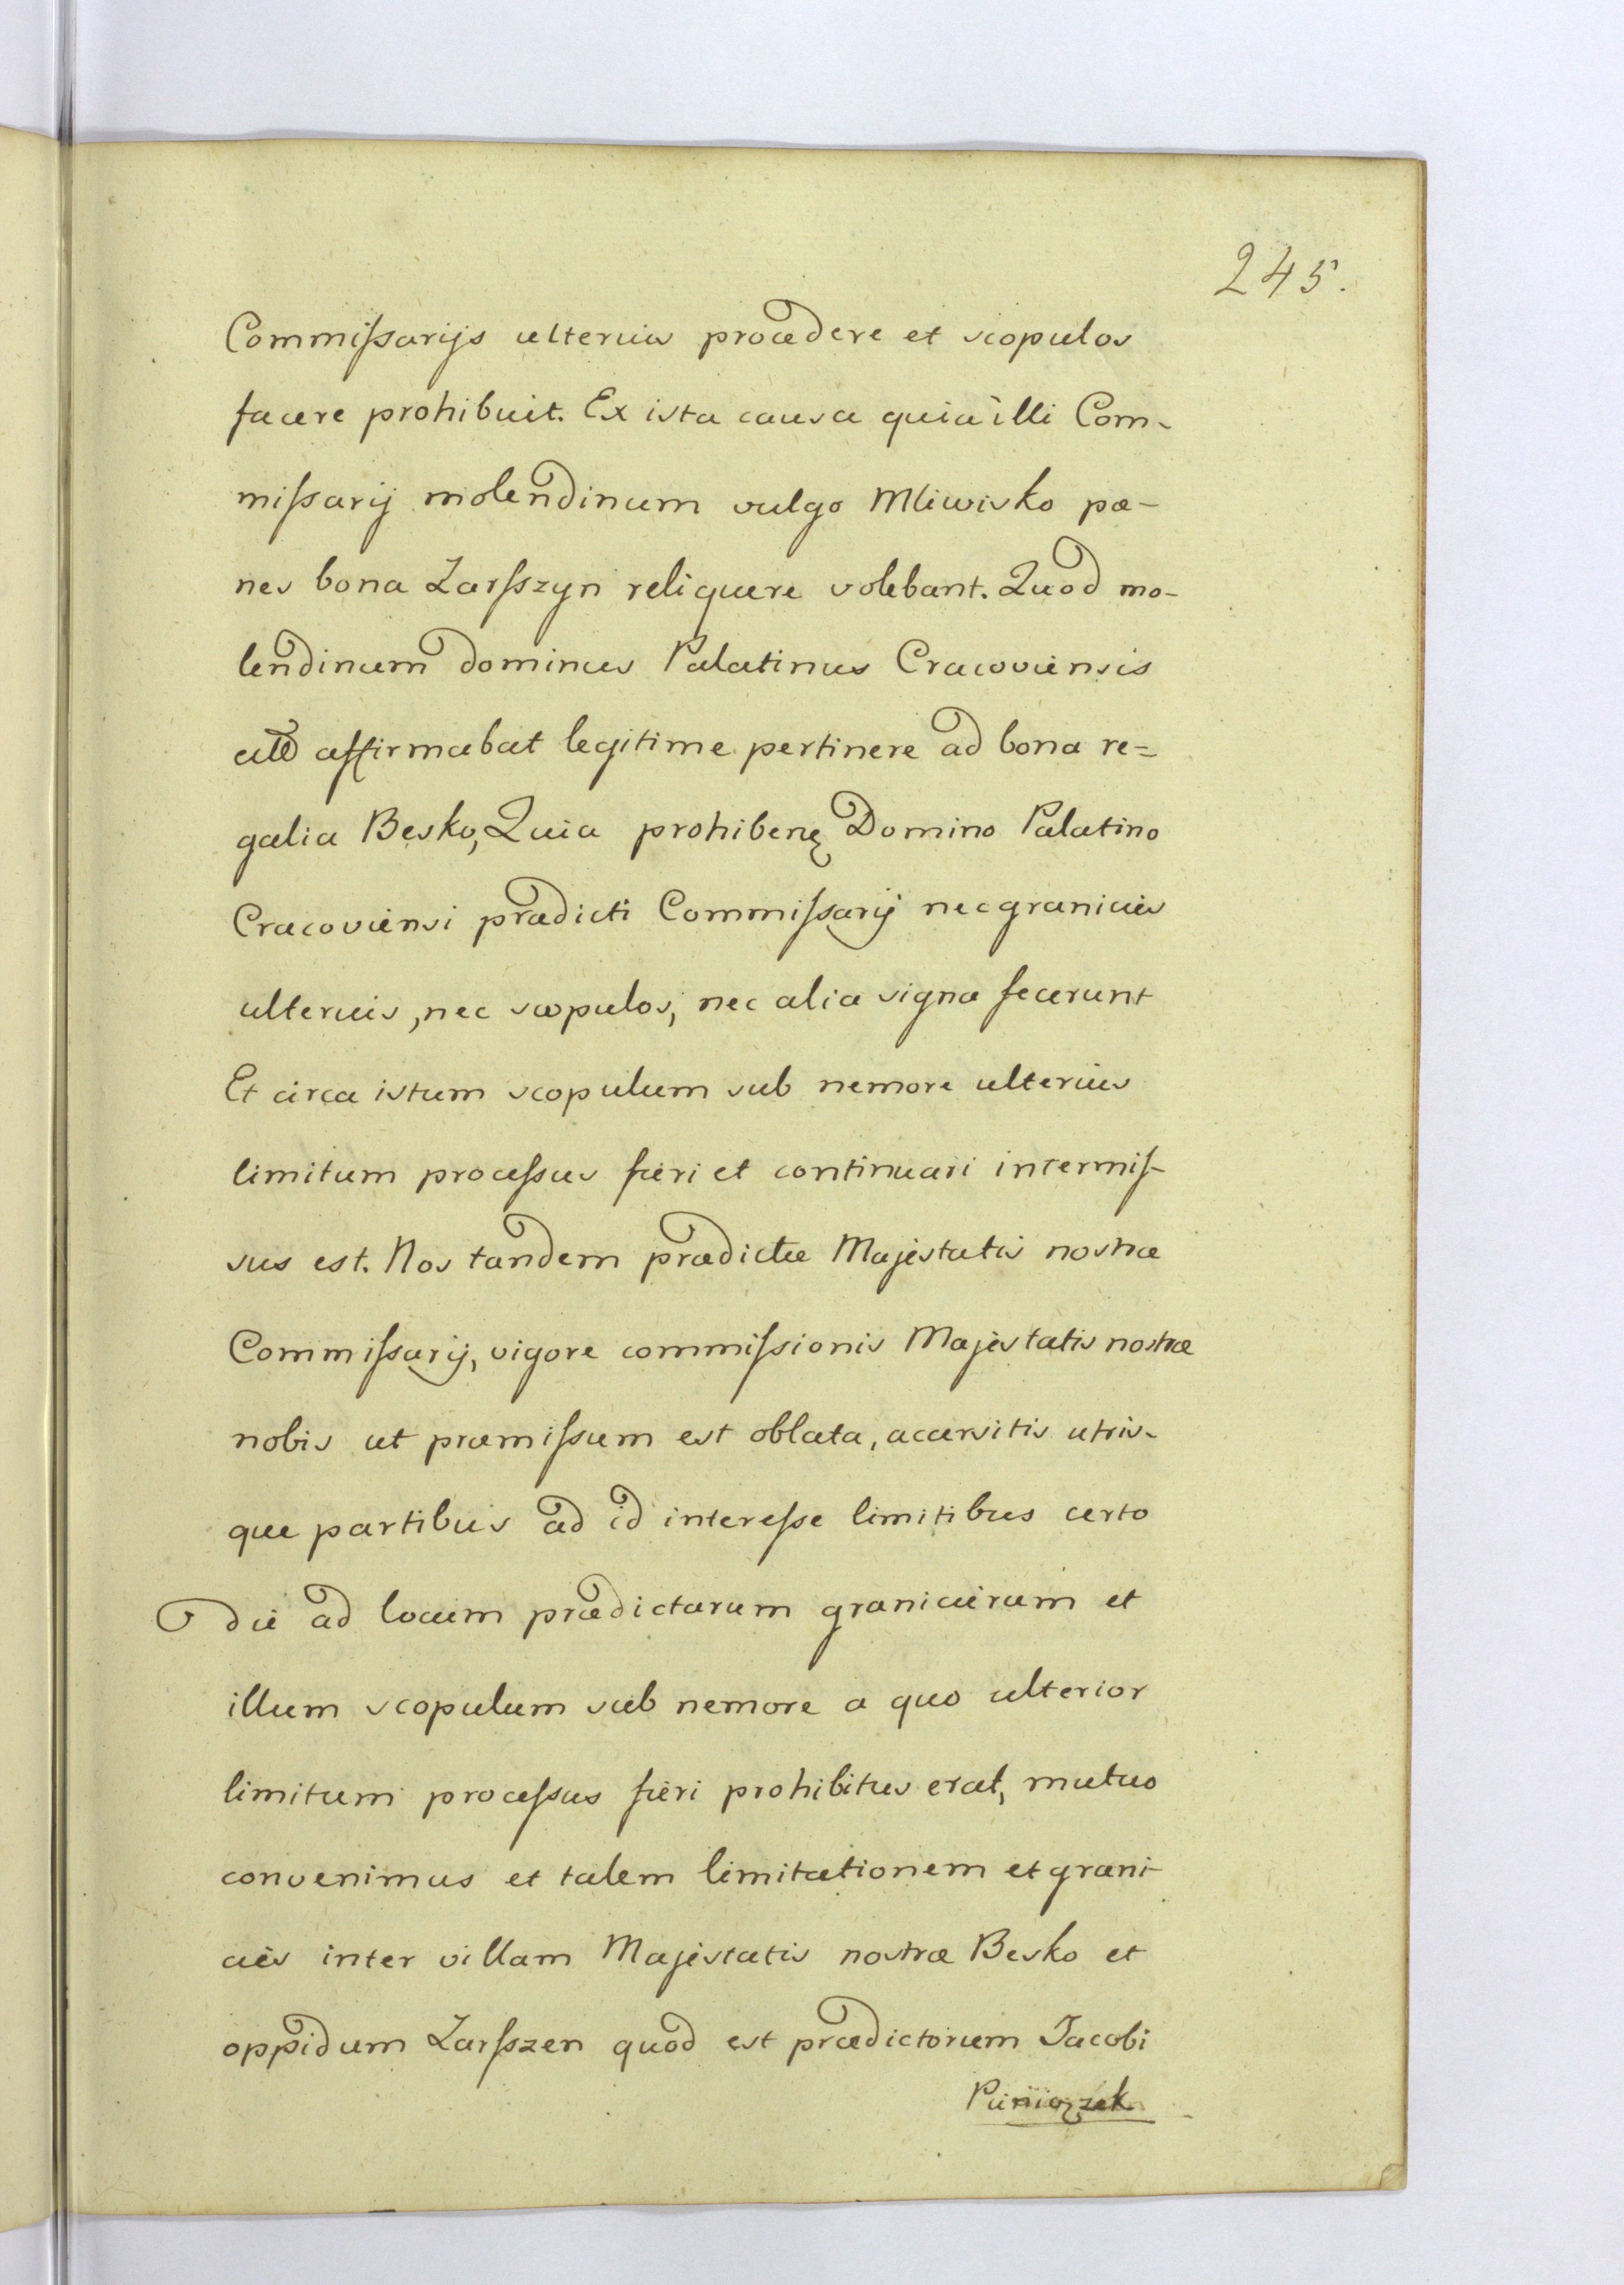 245.
Commiſsarijs ulterius procedere et scopulos
facere prohibuit. Ex ista causa quia illi Com-
miſsarij molendinum vulgo Mliwisko pæ-
nes bona Zarſszyn reliquere volebant. Quod mo-
lendinum dominus Palatinus Cracoviensis
aſfirmabat legitime pertinere ad bona re=
galia Besko, Quia prohibenę Domino Palatino
Cracoviensi prædicti Commiſsarij nec granicies
ulterius, nec scopulos, nec alia signa fecerunt
Et circa istum scopulum sub nemore ulterius
limitum proceſsus fieri et continuari intermiſ-
sus est. Nos tandem prædictæ Majestatis nostræ
Commiſsarij, vigore commiſsionis Majestatis nostræ
nobis ut præmiſsum est oblata, accersitis utris-
que partibus ad id intereſse limitibus certo
die ad locum prædictarum granicierum et
illum scopulum sub nemore a quo ulterior
limitum proceſsus fieri prohibitus erat, mutuo
convenimus et talem limitationem et grani-
cies inter villam Majestatis nostræ Besko et
oppidum Zarſszen quod est prædictorum Jacobi
Pieniązek